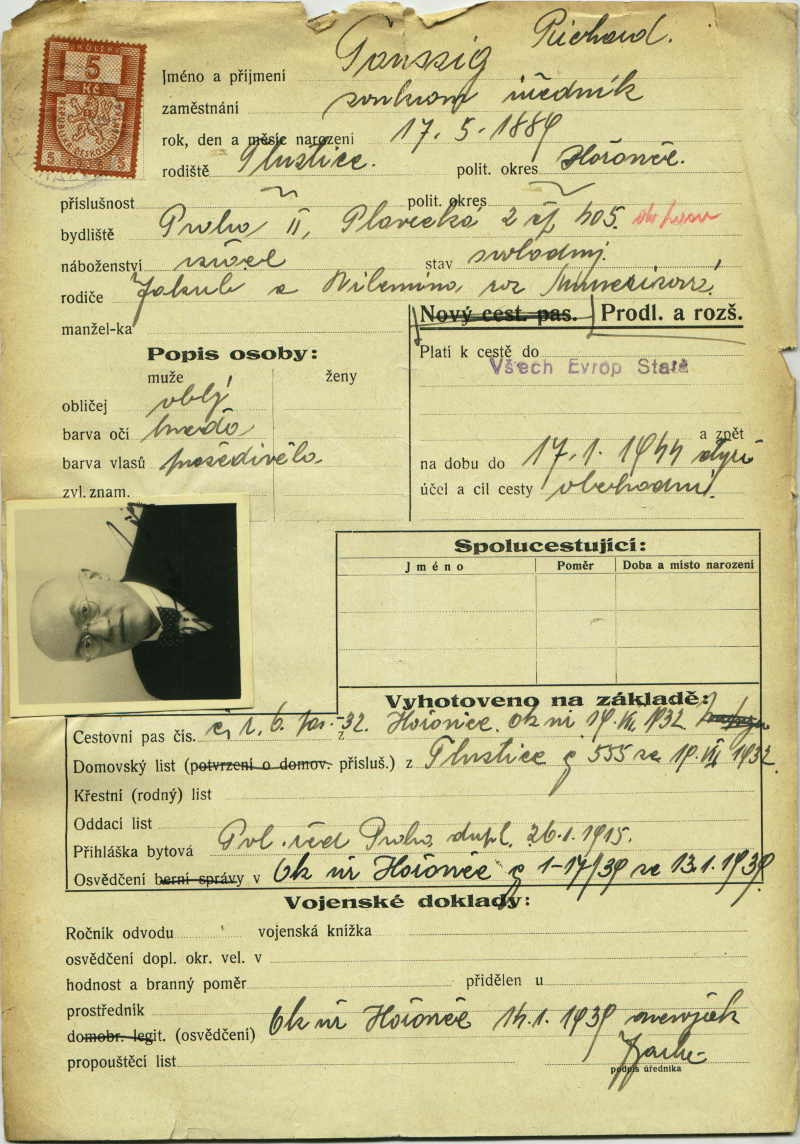 KOLEK
5
Kč
REPUBLIKA ČESKOSLOVENSKÁ
5 5
Jméno a příjmení Tanszig Richard.
zaměstnání soukrom úředník
rok, den a měsíc narození 17. 5. 1889
rodiště Tlustice. polit. okres Hořovice.
příslušnost ~ polit. okres ~
bydliště Praha II, Plavecká 2 čp 405.
náboženství israel stav svobodný.
rodiče Jakub a Vilemína roz
manžel-ka
Nový cest. pas. Prodl. a rozš.
Popis osoby:
Platí k cestě do
Všech Evrop Stará
muže ženy
obličej oblý
barva očí hnědá
barva vlasů prošedivělá
zvl. znam.
a zpět
na dobu do 17. 1. 1944
účel a cíl cesty obchodní.
Spolucestující:
Jméno Poměr Doba a místo narození
Vyhotoveno na základě:
Cestovní pas čís. z Hořovice. Ok úř 19. VII. 1932
Domovský list (potvrzení o domov. přísluš.) z Tlustice č 555 ze 19. VII 1932.
Křestní (rodný) list
Oddací list
Přihláška bytová Pol. řed Praha, dupl. 26. 1. 1915.
Osvědčení berní správy v Ok úř Hořovice č 1-17/39 ze 13. 1. 1939
Vojenské doklady:
Ročník odvodu vojenská knížka
osvědčení dopl. okr. vel. v
hodnost a branný poměr přidělen u
prostředník
domobr. legit. (osvědčení) Ok úř Hořovice 14. 1. 1939 nevoják
propouštěcí list
podpis úředníka